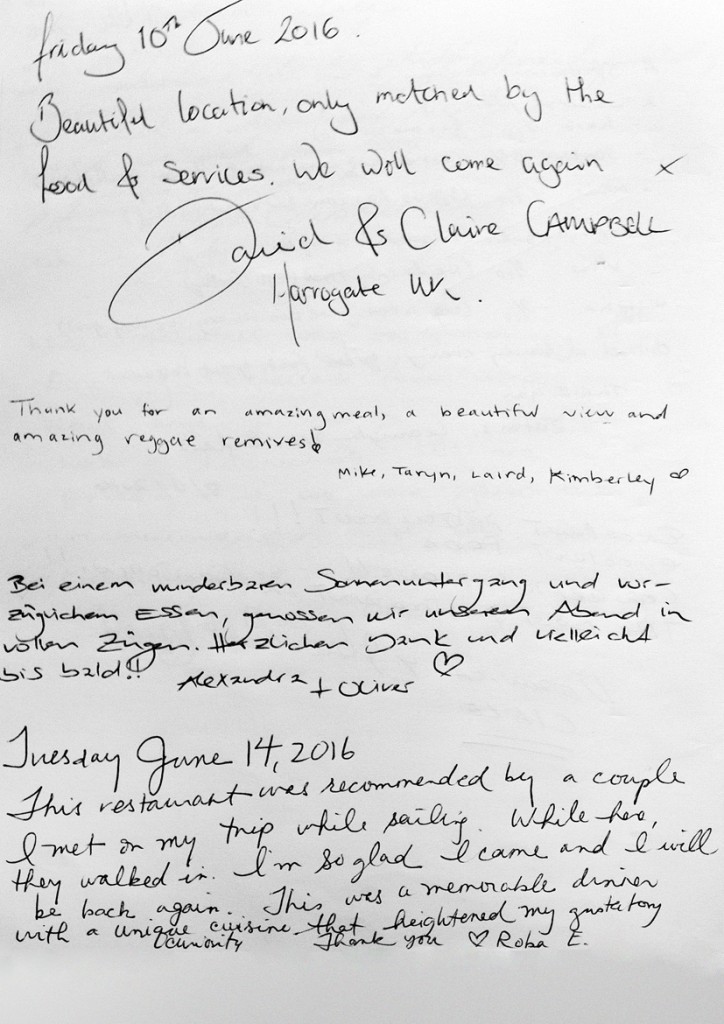 friday 10th June 2016.
Beautiful location, only matched by the
food & services. We will come again x
David & Claire CAMPBELL
Harrogate UK.
Thank you for an amazing meal, a beautiful view and
amazing reggae remixes!
Mike, Taryn, Laird, Kimberley ♡
Bei einem wunderbaren Sonnenuntergang und vor-
züglichem Essen, genossen wir unseren Abend in
vollen Zügen. Herzlichen Dank und vielleicht
bis bald!! ♡
Alexandra + Oliver
Tuesday June 14, 2016
This restaurant was recommended by a couple
I met on my trip while sailing. While here,
they walked in. I'm so glad I came and I will
be back again. This was a memorable dinner
with a unique cuisine that heightened my gustatory
curiosity Thank you ♡ E.